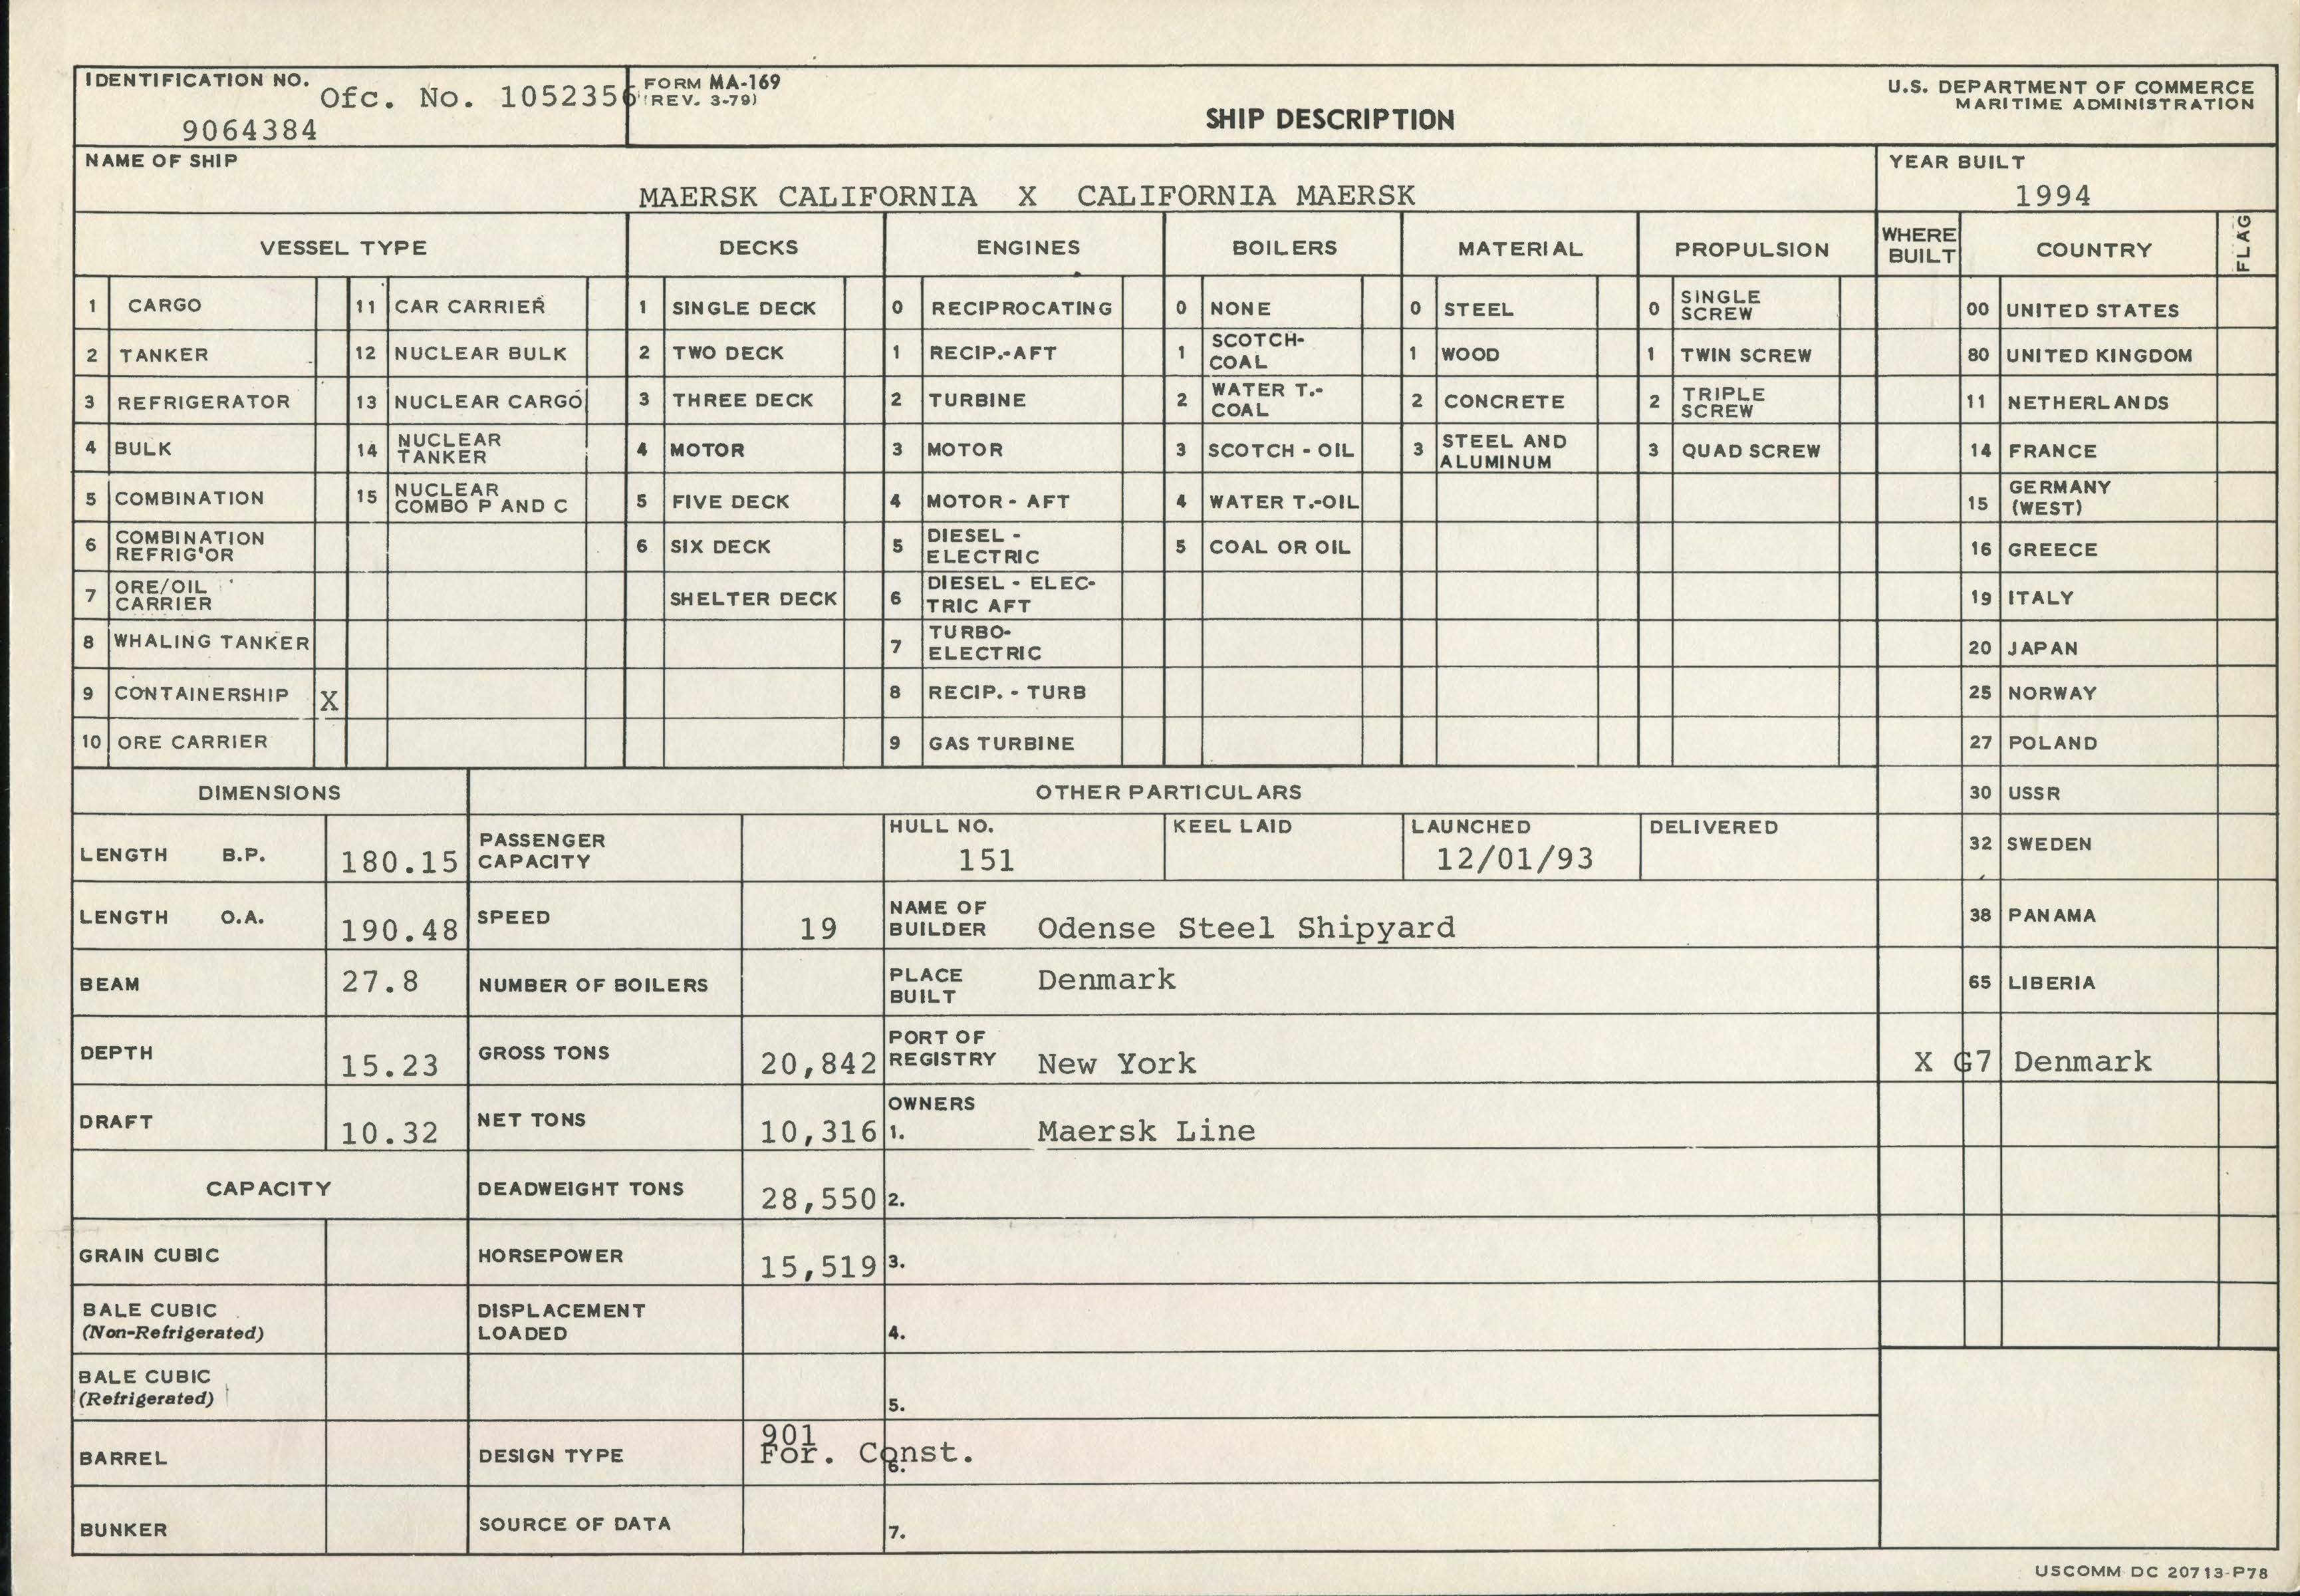 IDENTIFICATION NO. Ofc. No. 1052356 FORM MA-169 U.S. DEPARTMENT OF COMMERCE
(REV. 3-79) MARITIME ADMINISTRATION
9064384 SHIP DESCRIPTION
NAME OF SHIP YEAR BUILT
MAERSK CALIFORNIA X CALIFORNIA MAERSK 1994
VESSEL TYPE DECKS ENGINES BOILERS MATERIAL PROPULSION WHERE BUILT COUNTRY FLAG
1 CARGO 11 CAR CARRIER 1 SINGLE DECK 0 RECIPROCATING 0 NONE 0 STEEL 0 SINGLE SCREW 00 UNITED STATES
2 TANKER 12 NUCLEAR BULK 2 TWO DECK 1 RECIP.-AFT 1 SCOTCH-COAL 1 WOOD 1 TWIN SCREW 80 UNITED KINGDOM
3 REFRIGERATOR 13 NUCLEAR CARGO 3 THREE DECK 2 TURBINE 2 WATER T.-COAL 2 CONCRETE 2 TRIPLE SCREW 11 NETHERLANDS
4 BULK 14 NUCLEAR TANKER 4 MOTOR 3 MOTOR 3 SCOTCH - OIL 3 STEEL AND ALUMINUM 3 QUAD SCREW 14 FRANCE
5 COMBINATION 15 NUCLEAR COMBO P AND C 5 FIVE DECK 4 MOTOR - AFT 4 WATER T.-OIL 15 GERMANY (WEST)
6 COMBINATION REFRIG'OR 6 SIX DECK 5 DIESEL - ELECTRIC 5 COAL OR OIL 16 GREECE
7 ORE/OIL CARRIER SHELTER DECK 6 DIESEL - ELEC-TRIC AFT 19 ITALY
8 WHALING TANKER 7 TURBO-ELECTRIC 20 JAPAN
9 CONTAINERSHIP X 8 RECIP. - TURB 25 NORWAY
10 ORE CARRIER 9 GAS TURBINE 27 POLAND
DIMENSIONS OTHER PARTICULARS 30 USSR
LENGTH B.P. 180.15 PASSENGER CAPACITY HULL NO. 151 KEEL LAID LAUNCHED 12/01/93 DELIVERED 32 SWEDEN
LENGTH O.A. 190.48 SPEED 19 NAME OF BUILDER Odense Steel Shipyard 38 PANAMA
BEAM 27.8 NUMBER OF BOILERS PLACE BUILT Denmark 65 LIBERIA
DEPTH 15.23 GROSS TONS 20,842 PORT OF REGISTRY New York X G7 Denmark
DRAFT 10.32 NET TONS 10,316 OWNERS 1. Maersk Line
CAPACITY DEADWEIGHT TONS 28,550 2.
GRAIN CUBIC HORSEPOWER 15,519 3.
BALE CUBIC (Non-Refrigerated) DISPLACEMENT LOADED 4.
BALE CUBIC (Refrigerated) 5.
BARREL DESIGN TYPE 901 For. Const. 6.
BUNKER SOURCE OF DATA 7.
USCOMM DC 20713-P78